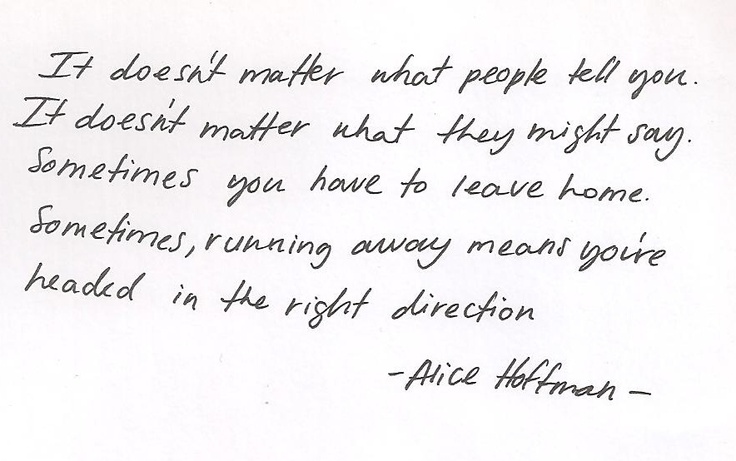 It doesn't matter what people tell you.
It doesn't matter what they might say.
Sometimes you have to leave home.
Sometimes, running away means you're
headed in the right direction
-Alice Hoffman-